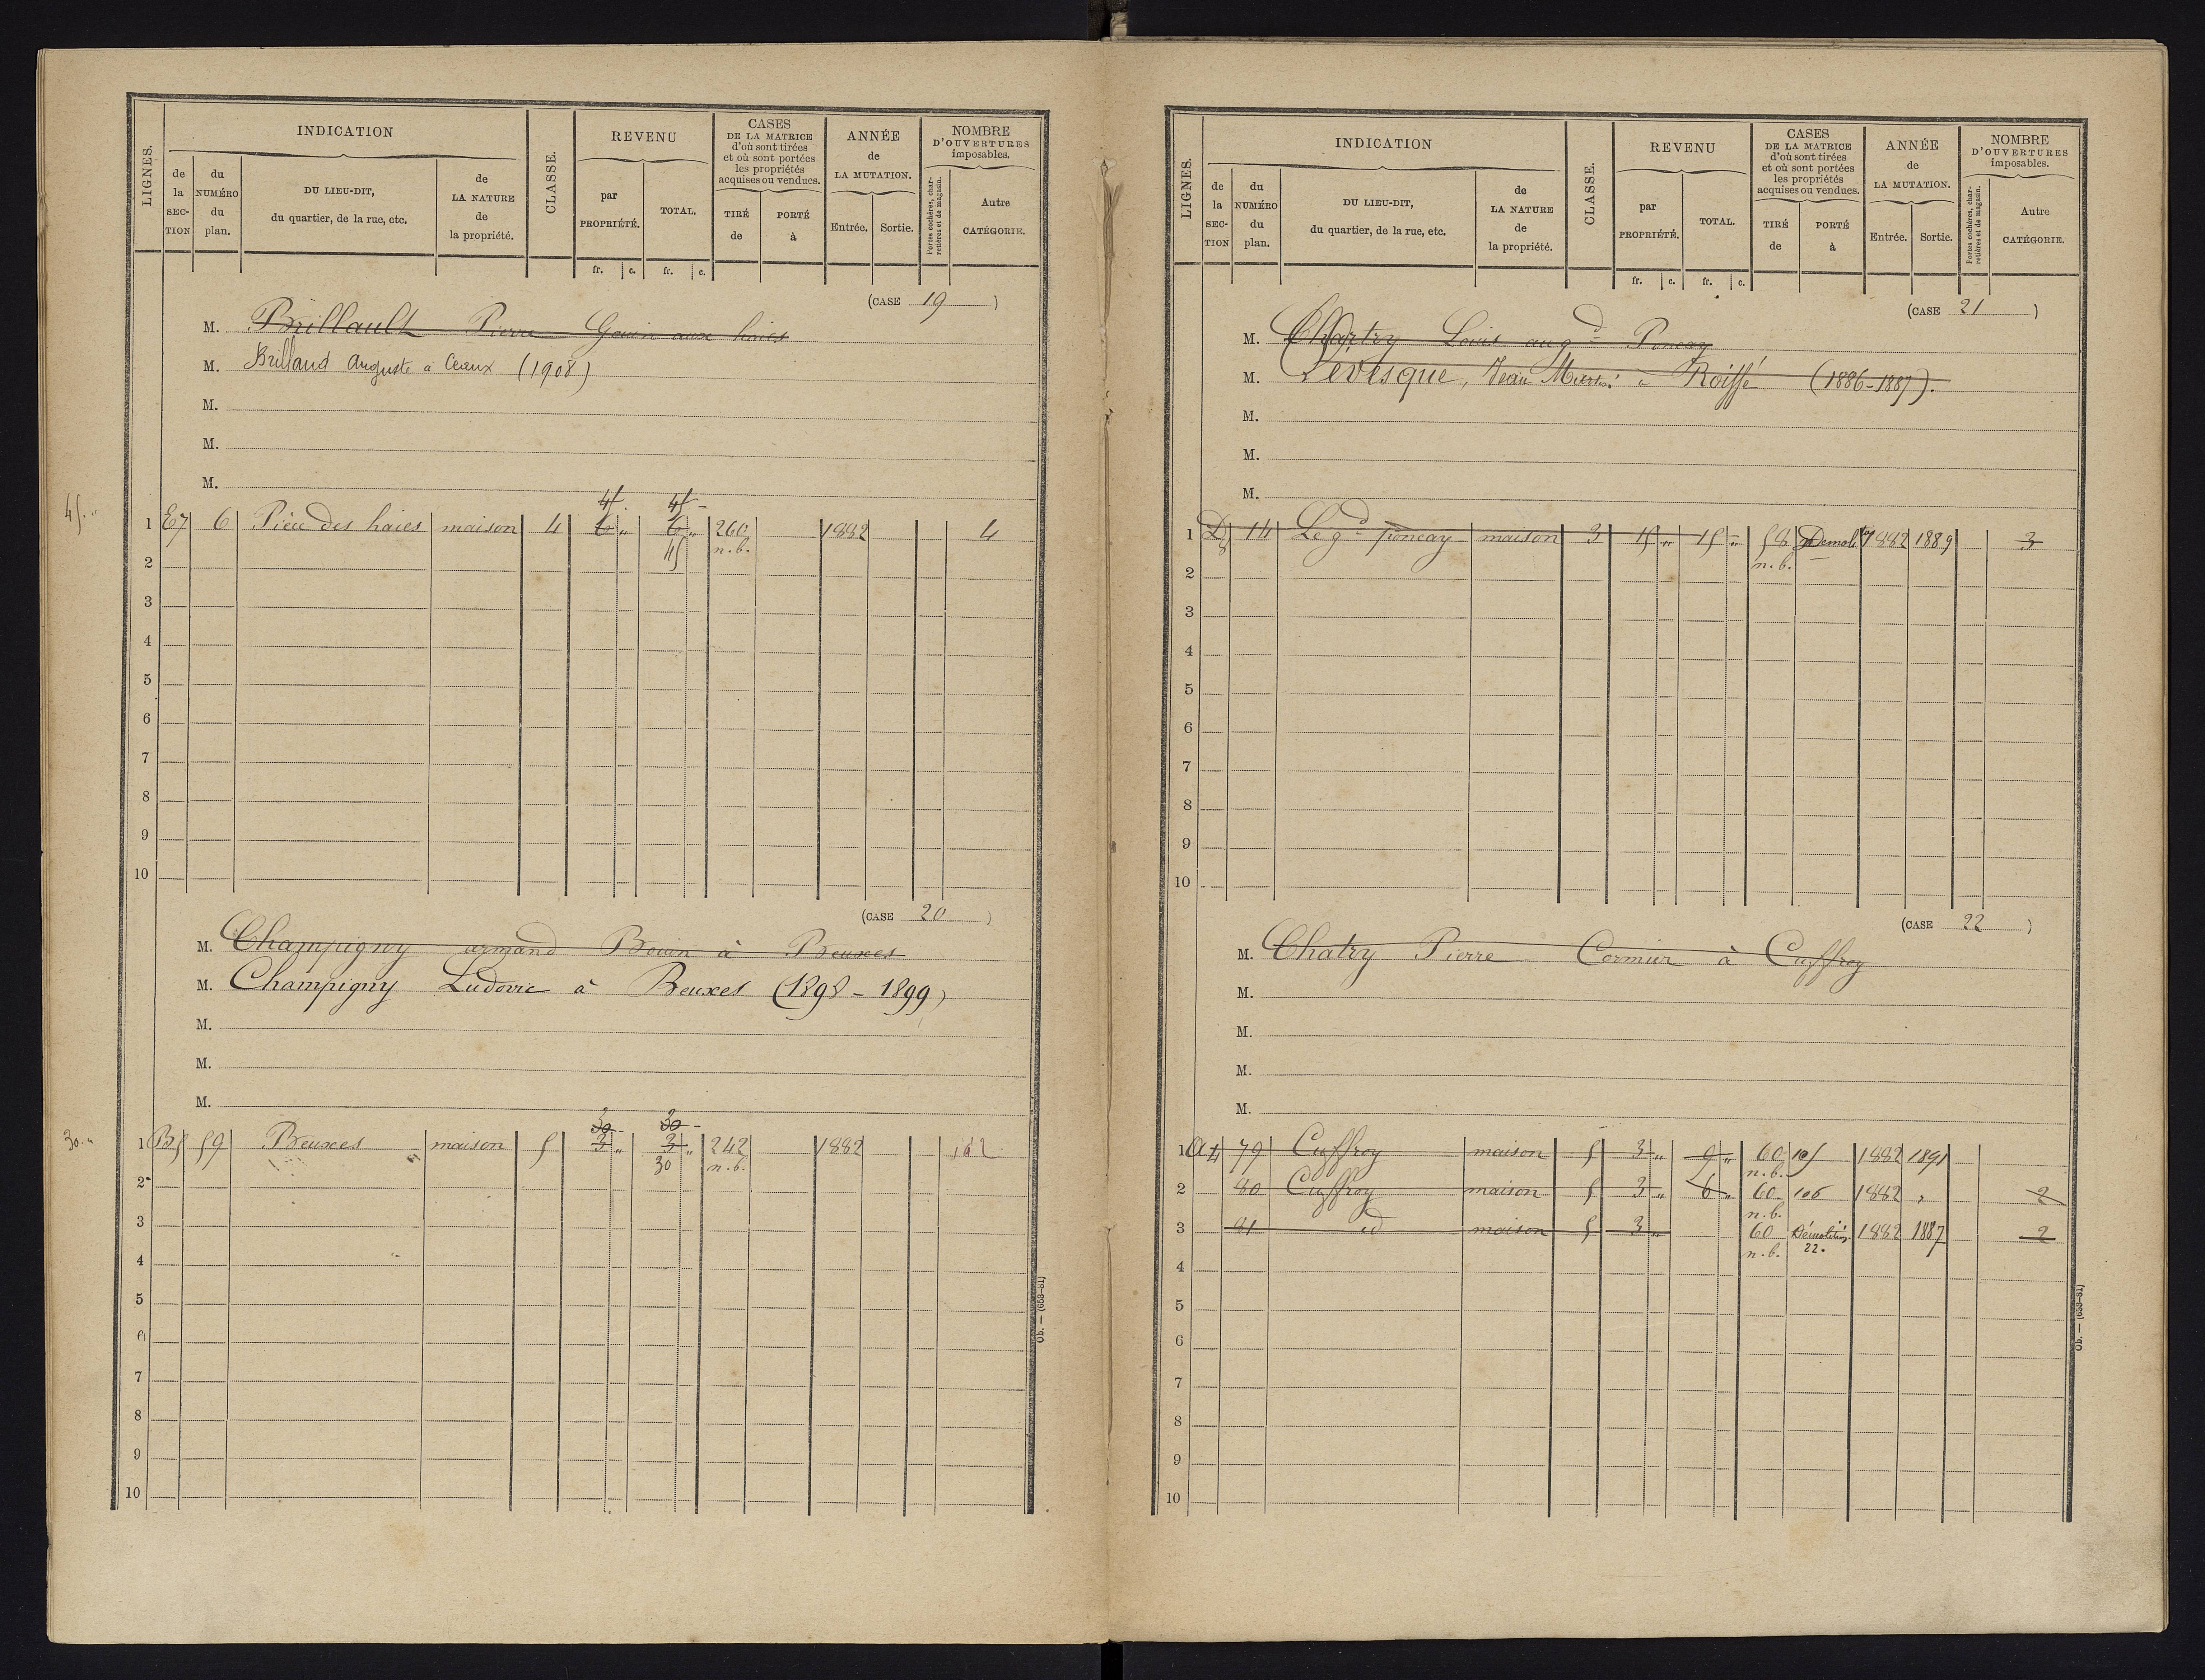 LIGNES.
INDICATION
de la SECTION
du NUMÉRO du plan.
DU LIEU-DIT, du quartier, de la rue, etc.
de LA NATURE de la propriété.
CLASSE.
REVENU
par PROPRIÉTÉ.
TOTAL.
fr. c. fr. c.
CASES DE LA MATRICE d'où sont tirées et où sont portées les propriétés acquises ou vendues.
TIRÉ de
PORTÉ à
ANNÉE de LA MUTATION.
Entrée. Sortie.
NOMBRE D'OUVERTURES imposables.
Portes cochères, charretières et de magasin.
Autre CATÉGORIE.
(CASE 19)
M. Brillault Pierre Gouin aux haies
M. Brillaud Auguste à Ceaux (1908)
M.
M.
M.
45 45
45
1 E7 6 Pièce des haies maison 4 6 " 6 " 260 1882 4
45 n.b.
2
3
4
5
6
7
8
9
10
(CASE 20)
M. Champigny armand Bouin à Beuxes
M. Champigny Ludovic à Beuxes (1898-1899)
M.
M.
M.
30 30
30
1 B5 59 Beuxes maison 5 3 " 3 " 242 1882 2
30 n.b.
2
3
4
5
6
7
8
9
10
Ob. — (653-81)
LIGNES.
INDICATION
de la SECTION
du NUMÉRO du plan.
DU LIEU-DIT, du quartier, de la rue, etc.
de LA NATURE de la propriété.
CLASSE.
REVENU
par PROPRIÉTÉ.
TOTAL.
fr. c. fr. c.
CASES DE LA MATRICE d'où sont tirées et où sont portées les propriétés acquises ou vendues.
TIRÉ de
PORTÉ à
ANNÉE de LA MUTATION.
Entrée. Sortie.
NOMBRE D'OUVERTURES imposables.
Portes cochères, charretières et de magasin.
Autre CATÉGORIE.
(CASE 21)
M. Chartry Louis au gd Poncay
M. Levesque, Jean à Roiffé (1886-1887).
M.
M.
M.
1 D5 14 Le gd poncay maison 3 15 " 15 " 58 Demolon 1882 1889 3
n.b.
2
3
4
5
6
7
8
9
10
(CASE 22)
M. Chatry Pierre Cormier à Cuffroy
M.
M.
M.
M.
1 A4 79 Cuffroy maison 5 3 " 9 " 60 105 1882 1891
n.b.
2 80 Cuffroy maison 5 3 " 6 " 60 106 1882 " 2
n.b.
3 81 id maison 5 3 " 60 Démolition 1882 1887 2
n.b. 22.
4
5
6
7
8
9
10
Ob. — (653-81)